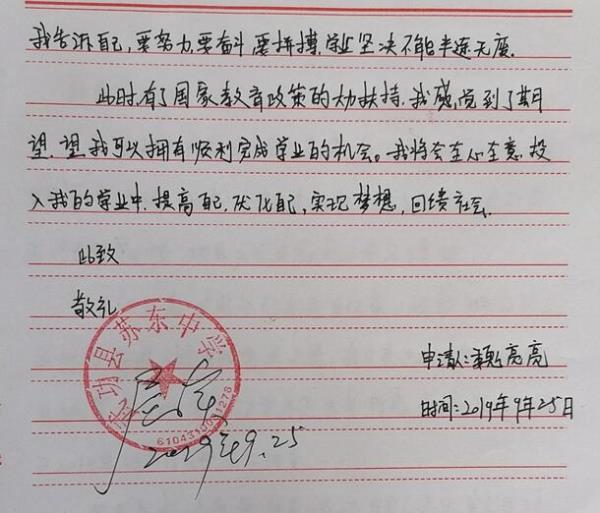 我告诉自己,要努力,要奋斗,要拼搏,学业坚决不能半途无废.
此时,有了国家教育政策的大力扶持,我感觉到了期
望,望我可以拥有顺利完成学业的机会。我将会全心全意投
入我的学业中,提高自己,优化自己,实现梦想,回馈社会.
此致
敬礼
武功县苏东中学
6104315011278
2019年9.25
申请人:魏亮亮
时间:2019年9月25日